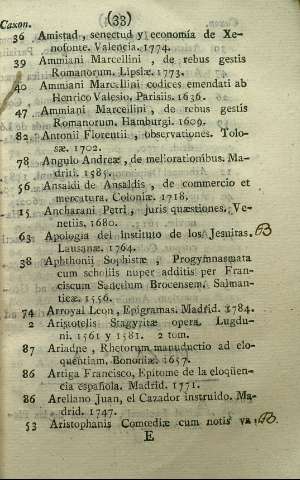 (33)
Caxon.
36 Amistad, senectud y economía de Xe-
nofonte. Valencia. 1774.
39 Ammiani Marcellini, de rebus gestis
Romanorum. Lipsiæ. 1773.
40 Ammiani Marcellini codices emendati ab
Henrico Valesio. Parisiis. 1636.
47 Ammiani Marcellini, de rebus gestis
Romanorum. Hamburgi. 1609.
82 Antonii Florentii, observationes. Tolo-
sæ. 1702.
78 Angulo Andreæ, de meliorationibus. Ma-
driti. 1585.
56 Ansaldi de Ansaldis, de commercio et
mercatura. Coloniæ. 1718.
15 Ancharani Petri, juris quæstiones. Ve-
netiis. 1680.
63 Apologia del instituto de los Jesuitas.
Lausanæ. 1764.
38 Aphthonii Sophistæ, Progymnasmata
cum scholiis nuper additis per Fran-
ciscum Sanctium Brocensem. Salman-
ticæ. 1556.
74 Arroyal Leon, Epigramas. Madrid. 1784.
2 Aristotelis Stagyritæ opera. Lugdu-
ni. 1561 y 1581. 2 tom.
87 Ariadne, Rhetorum manuductio ad elo-
quentiam. Bononiæ. 1657.
86 Artiga Francisco, Epítome de la eloqüen-
cia española. Madrid. 1771.
86 Arellano Juan, el Cazador instruido. Ma-
drid. 1747.
53 Aristophanis Comœdiæ cum notis va-
E